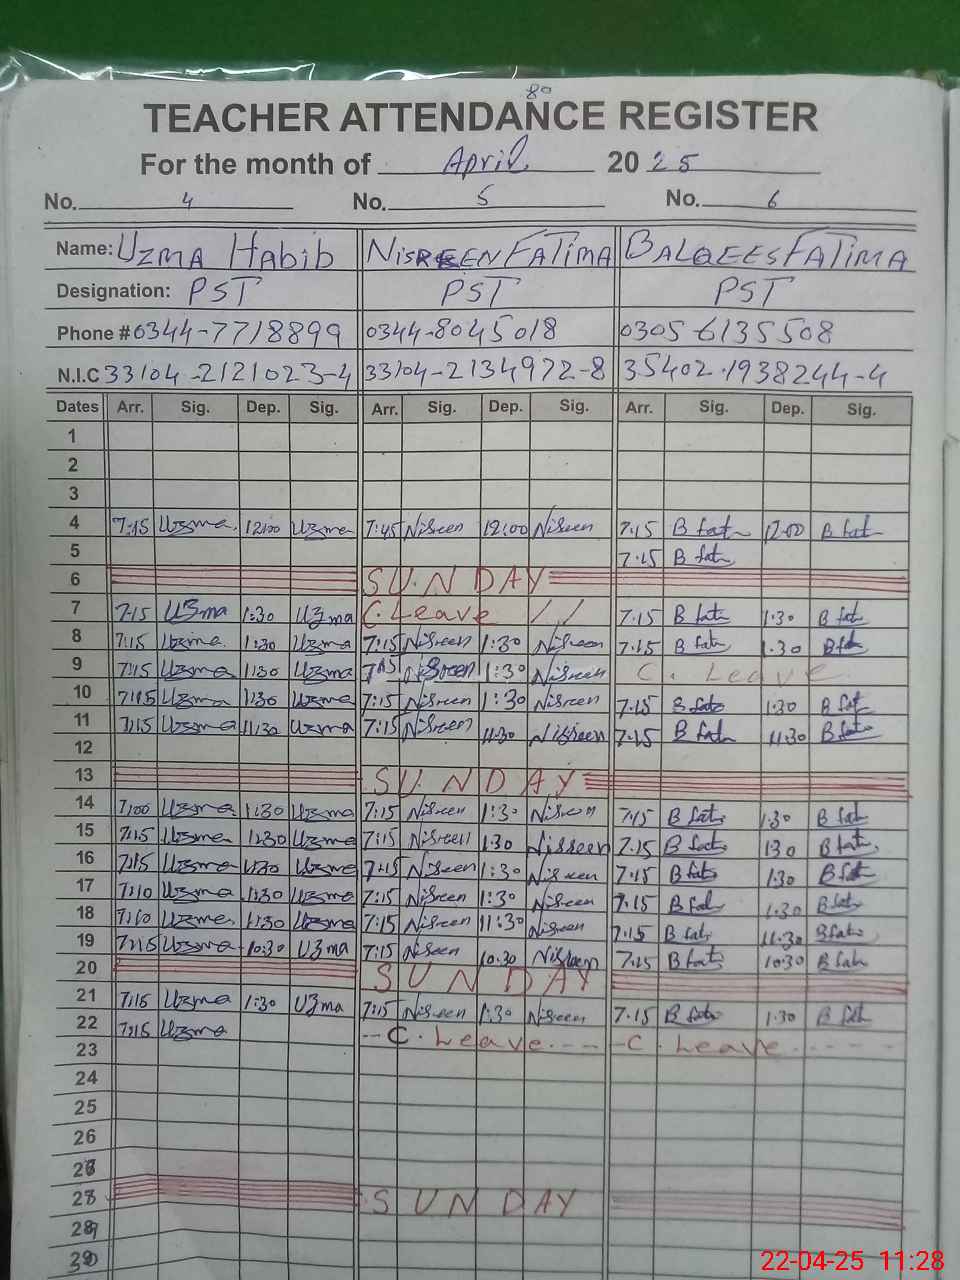 80
TEACHER ATTENDANCE REGISTER
For the month of April 2025
No. 4 No. 5 No. 6
Name: UZMA HABIB NISREEN FATIMA BALQEES FATIMA
Designation: PST PST PST
Phone # 0344-7718899 0344-8045018 0305-6135508
N.I.C 33104-2121023-4 33104-2134972-8 35402-1938244-4
Dates Arr. Sig. Dep. Sig. Arr. Sig. Dep. Sig. Arr. Sig. Dep. Sig.
1
2
3
4 7:15 Uzma 12:00 Uzma 7:45 Nisreen 12:00 Nisreen 7.15 B fat 12.00 B fat
5 7.15 B fat
6 SUNDAY
7 7:15 Uzma 1:30 Uzma C. Leave // 7.15 B fat 1.30 B fat
8 7:15 Uzma 1:30 Uzma 7:15 Nisreen 1:30 Nisreen 7.15 B fat 1.30 B fat
9 7:15 Uzma 1:30 Uzma 7:15 Nisreen 1:30 Nisreen C. Leave
10 7:15 Uzma 1:30 Uzma 7:15 Nisreen 1:30 Nisreen 7.15 B fat 1.30 B fat
11 7:15 Uzma 11:30 Uzma 7:15 Nisreen 11:30 Nisreen 7.15 B fat 11.30 B fat
12
13 SUNDAY
14 7:00 Uzma 1:30 Uzma 7:15 Nisreen 1:30 Nisreen 7.15 B fat 1.30 B fat
15 7:15 Uzma 1:30 Uzma 7:15 Nisreen 1:30 Nisreen 7.15 B fat 1.30 B fat
16 7:15 Uzma 1:30 Uzma 7:15 Nisreen 1:30 Nisreen 7.15 B fat 1.30 B fat
17 7:10 Uzma 1:30 Uzma 7:15 Nisreen 1:30 Nisreen 7.15 B fat 1.30 B fat
18 7:10 Uzma 11:30 Uzma 7:15 Nisreen 11:30 Nisreen 7.15 B fat 11.30 B fat
19 7:15 Uzma 10:30 Uzma 7:15 Nisreen 10:30 Nisreen 7.15 B fat 10:30 B fat
20 SUNDAY
21 7:15 Uzma 1:30 Uzma 7:15 Nisreen 1:30 Nisreen 7.15 B fat 1.30 B fat
22 7:15 Uzma C. Leave C. Leave
23
24
25
26
27
28 SUNDAY
29
30
22-04-25 11:28